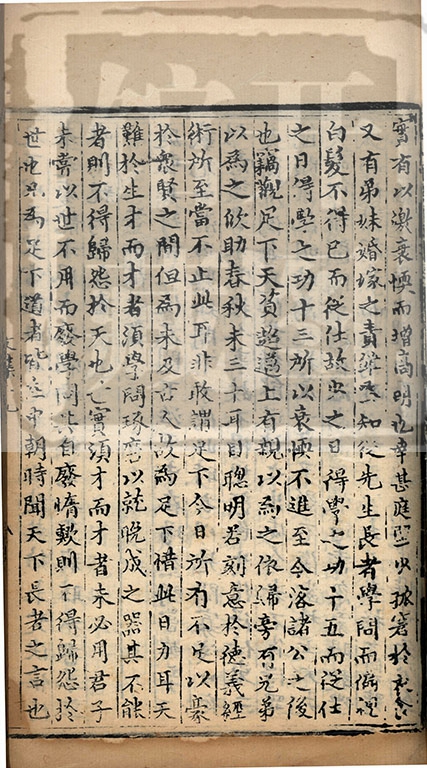 實有以激衰懦而增高明也幸甚庭堅少孤窘於衣食
又有弟妹婚嫁之責雖蚤知從先生長者學問而偏親
白髮不得已而從仕故少之日得學之功十五而從仕
之日得學之功十三所以衰懦不進至今落諸公之後
也竊觀足下天資超邁上有親以為之依歸旁有兄弟
以為之佽助春秋未三十耳目聰明若刻意於德義經
術所至當不止此耳非敢謂足下今日所有不足以豪
於眾賢之間但為未及古人故為足下惜此日力耳天
難於生才而才者須學問琢磨以就晚成之器其不能
者則不得歸怨於天也世實須才而才者未必用君子
未嘗以世不用而廢學問其自廢惰歟則不得歸怨於
世也凡為足下道者皆在中朝時聞天下長者之言也